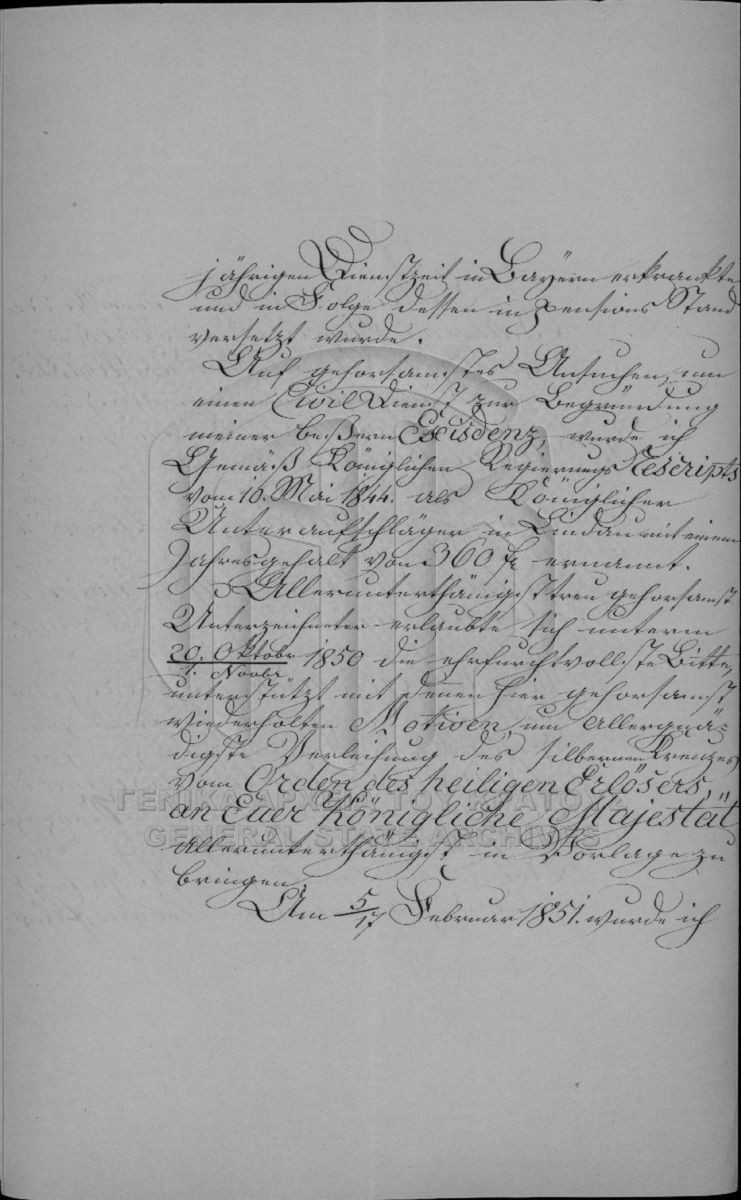 jährigen Dienstzeit in Bayern erkrankte
und in Folge dessen in Pensions Stand
versetzt wurde.
Auf gehorsamstes Ansuchen, um
einen Civil Dienst zur Begründung
meiner beßern Exisdenz, wurde ich
Gemäß Königlichen Regierungs Rescripts
vom 16. Mai 1844. als Königlicher
Unteraufschläger in Lindau mit einem
Jahresgehalt von 360 fl ernannt.
Allerunterthänigst treu gehorsamst
Unterzeichneter erlaubte sich unterm
20. Oktobr 1850 die ehrfurchtvollste Bitte,
1. Novbr
unterstützt mit denen hier gehorsamst
wiederholten Motiven, um allergnä=
digste Verleihung des silbernen Kreuzes
vom Orden des heiligen Erlösers,
an Euer Königliche Majestät
allerunterthänigst in Vorlage zu
bringen.
Am 5/17 Februar 1851. wurde ich
ΓΕΝΙΚΑ ΑΡΧΕΙΑ ΤΟΥ ΚΡΑΤΟΥΣ
GENERAL STATE ARCHIVES